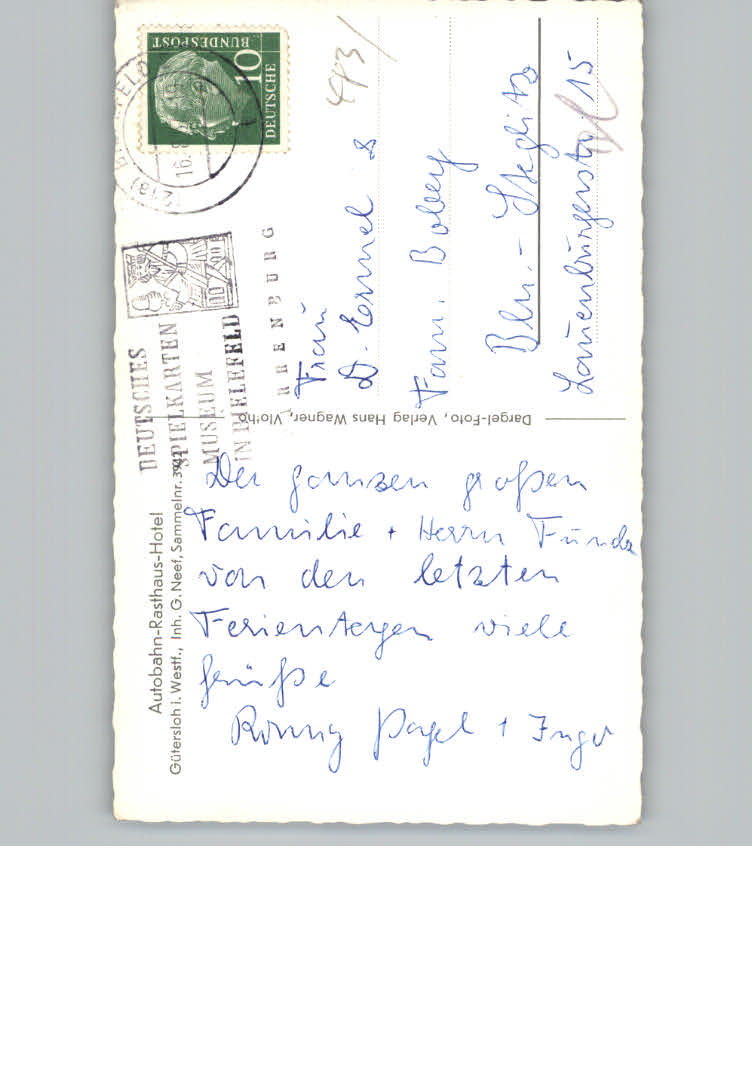 Autobahn-Rasthaus-Hotel
Gütersloh i. Westf., Inh. G. Neef, Sammelnr. 3942
Der ganzen großen
Familie + Herrn Funda
von den letzten
Ferientagen viele
Grüße
Pagel + Inge
Dargel-Foto, Verlag Hans Wagner, Vlotho
DEUTSCHES
SPIELKARTEN
MUSEUM
IN BIELEFELD
16.8
10
DEUTSCHE
BUNDESPOST
413/
Frau
D. &
Fam. Bobey
Bln. - Steglitz
Lauenburgerstr. 15